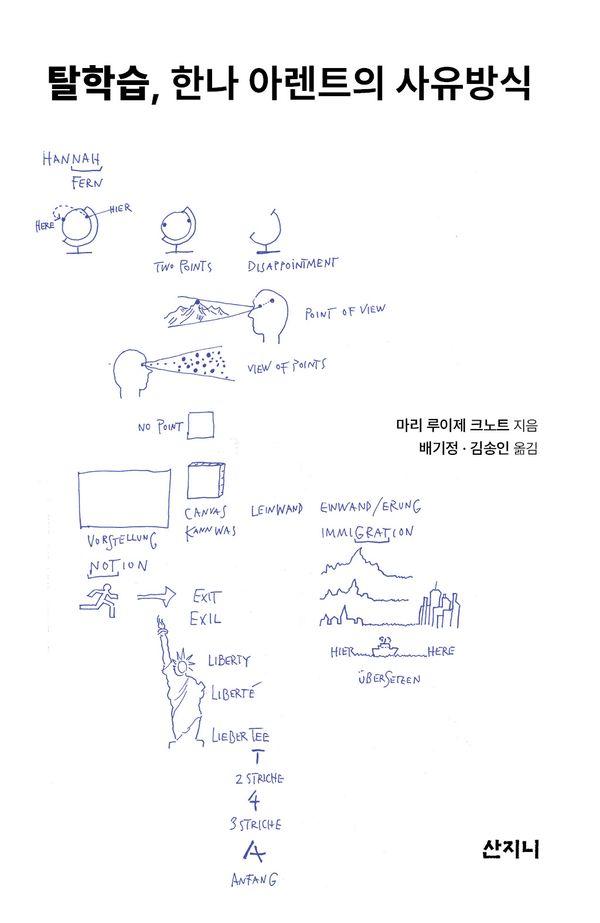 탈학습, 한나 아렌트의 사유방식
HANNAH
FERN
HERE HIER
TWO POINTS DISAPPOINTMENT
POINT OF VIEW
VIEW OF POINTS
NO POINT
마리 루이제 크노트 지음
배기정 · 김송인 옮김
CANVAS LEINWAND EINWAND/ERUNG
KANNWAS IMMIGRATION
VORSTELLUNG
NOTION
EXIT
EXIL
HIER HERE
ÜBERSETZEN
LIBERTY
LIBERTÉ
LIEBER TEE
T
2 STRICHE
4
3 STRICHE
A
ANFANG
산지니